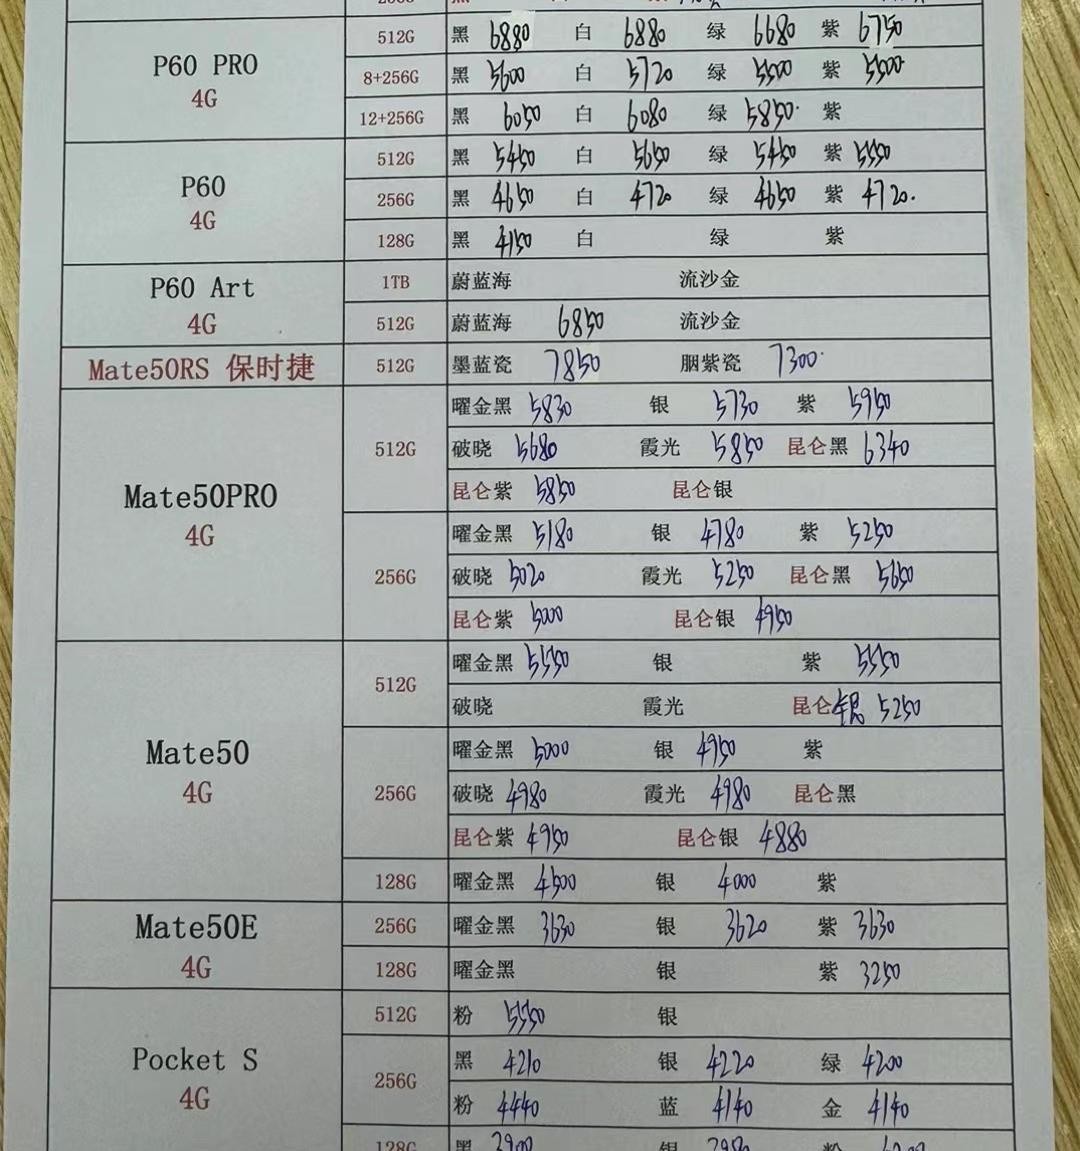 P60 PRO
4G
512G 黑 6880 白 6880 绿 6680 紫 6750
8+256G 黑 5600 白 5720 绿 5500 紫 5500
12+256G 黑 6050 白 6080 绿 5850 紫
P60
4G
512G 黑 5450 白 5650 绿 5450 紫 5550
256G 黑 4650 白 4720 绿 4650 紫 4720.
128G 黑 4150 白 绿 紫
P60 Art
4G
1TB 蔚蓝海 流沙金
512G 蔚蓝海 6850 流沙金
Mate50RS 保时捷 512G 墨蓝瓷 7850 胭紫瓷 7300
Mate50PRO
4G
512G 曜金黑 5830 银 5730 紫 5950
破晓 5680 霞光 5850 昆仑黑 6340
昆仑紫 5850 昆仑银
256G 曜金黑 5180 银 4780 紫 5250
破晓 5020 霞光 5250 昆仑黑 5650
昆仑紫 5000 昆仑银 4950
Mate50
4G
512G 曜金黑 5550 银 紫 5550
破晓 霞光 昆仑银 5250
256G 曜金黑 5000 银 4950 紫
破晓 4980 霞光 4980 昆仑黑
昆仑紫 4950 昆仑银 4880
128G 曜金黑 4500 银 4000 紫
Mate50E
4G
256G 曜金黑 3630 银 3620 紫 3630
128G 曜金黑 银 紫 3250
Pocket S
4G
512G 粉 5550 银
256G 黑 4210 银 4220 绿 4200
粉 4440 蓝 4140 金 4140
128G 黑 3900 银 3980 粉